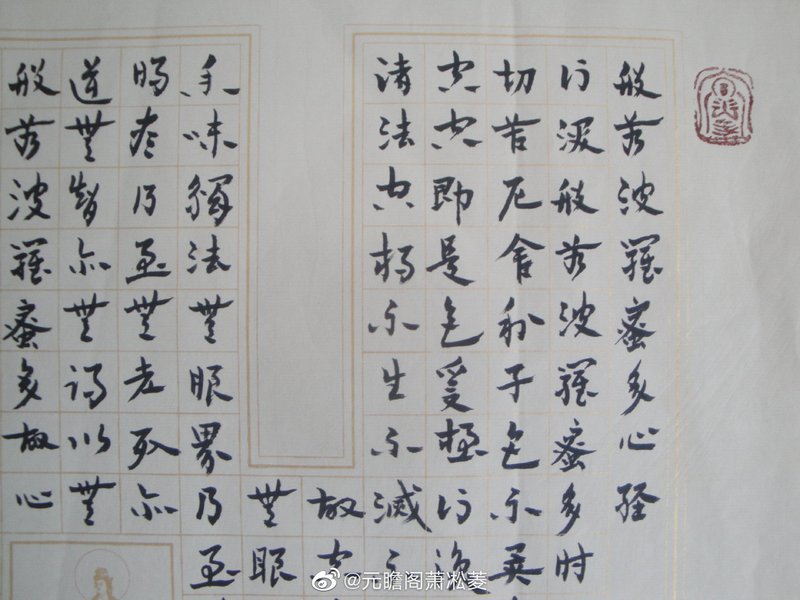 般若波羅蜜多心經
行深般若波羅蜜多时
切苦厄舍利子色不異
空空即是色受想行識
诸法空相不生不滅不
故空
無眼
香味觸法無眼界乃至
明盡乃至無老死亦
道無智亦無得以無
般若波羅蜜多故心
@元瞻阁萧凇菱